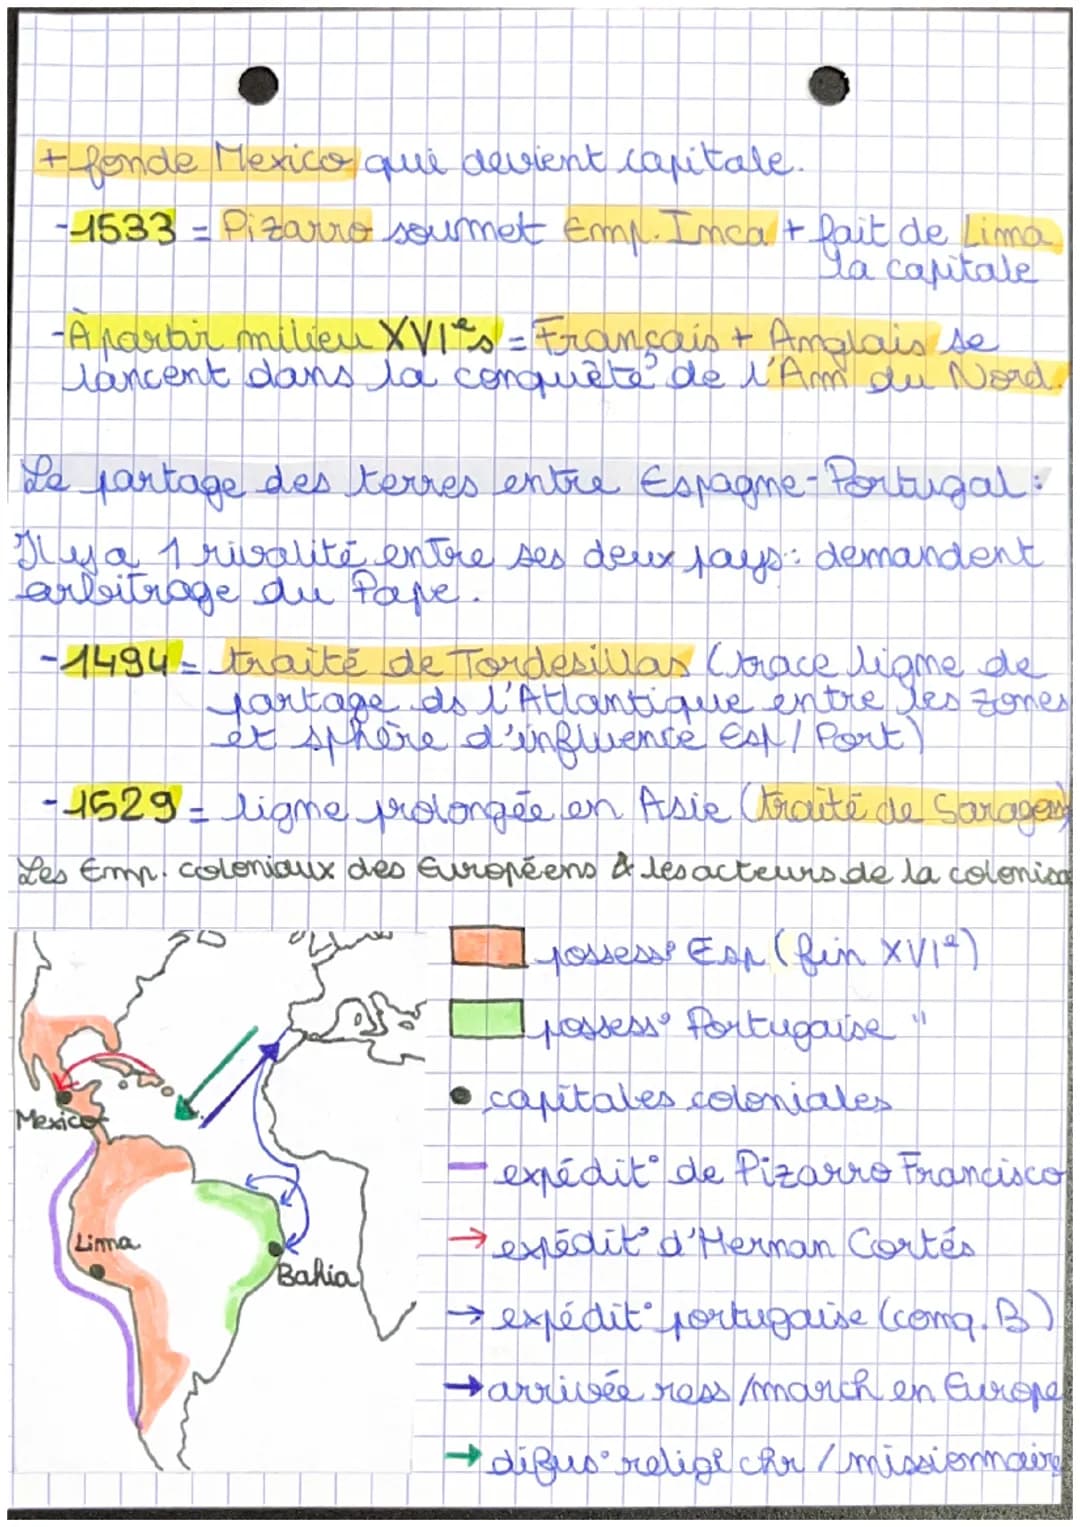 + fonde Mexico qui devient capitale.
-1533 = Pizarro soumet Emp. Inca + fait de Lima
la capitale
-À partir milieu XVIᵉs = Français + Anglais se
lancent dans la conquête de l'Am du Nord.
Le partage des terres entre Espagne-Portugal :
Il y a 1 rivalité entre ses deux pays : demandent
arbitrage du Pape.
-1494 = traité de Tordesillas (trace ligne de
partage ds l'Atlantique entre les zones
et sphère d'influence Esp/Port)
-1529 = ligne prolongée en Asie (traité de
Les Emp. coloniaux des Européens & les acteurs de la colonisa
possess° Esp (fin XVIᵉ)
possess° Portugaise "
capitales coloniales
Mexico
expédit° de Pizarro Francisco
Lima
expédit° d'Hernan Cortés
Bahia
expédit° portugaise (conq. B)
arrivée ress/march en Europe
difus° religi chr / missionnaire